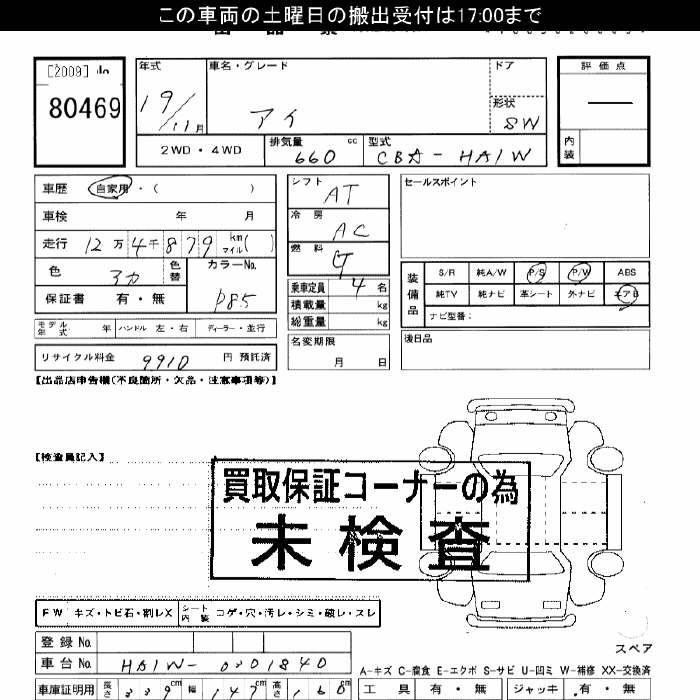 この車両の土曜日の搬出受付は17:00まで
[2009]
80469
年式 車名・グレード ドア 評価点
19/11月 アイ 形状 SW
2WD・4WD 排気量 660 cc 型式 CBA-HA1W 内装
車歴 自家用・( )
車検 年 月
走行 12万4千879 km マイル( )
色 アカ 色替 カラーNo. P85
保証書 有・無
モデル年式 年 ハンドル 左・右 ディーラー・並行
リサイクル料金 9910 円 預託済
シフト AT
冷房 AC
燃料 G
乗車定員 4 名
積載量 kg
総重量 kg
名変期限
月 日
セールスポイント
装備品 S/R 純A/W P/S P/W ABS
純TV 純ナビ 革シート 外ナビ エアB
ナビ型番:
後日品
【出品店申告欄(不良箇所・欠品・注意事項等)】
【検査員記入】
買取保証コーナーの為
未検査
FW キズ・トビ石・割レX シート内装 コゲ・穴・汚レ・シミ・破レ・スレ
登録No.
車台No. HA1W-0301840
スペア
A-キズ C-腐食 E-エクボ S-サビ U-凹ミ W-補修 XX-交換済
車庫証明用 長さ 339cm 幅 147cm 高さ 160cm
工具 有・無 ジャッキ 有・無